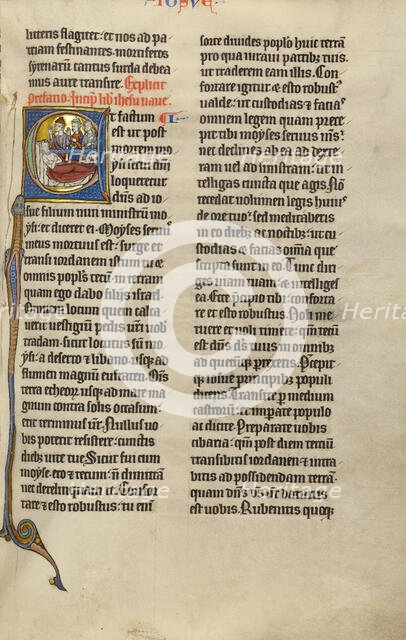 IOSVE
litteris flagitet: et nos ad pa
triam festinantes mortiferos
syrenarum cantus surda debea
mus aure transire. Explicit
Prefatio. Incipit lib ihesu naue.
Et factum
est ut post
mortem moy
si serui dni
loqueretur
dns ad io
sue filium nun ministrum mo
ysi: et diceret ei. Moyses seruus
meus mortuus est: surge et
transi iordanem istum tu et
omnis populus tecum: in terram
quam ego dabo filiis israel.
Omnem locum quem calca
uerit uestigium pedis uestri: uob
tradam: sicut locutus sum mo
ysi: a deserto et libano usque ad
fluuium magnum eufraten. Omis
terra etheorum usque ad mare ma
gnum contra solis occasum:
erit terminus uester. Nullus uo
bis poterit resistere: cunctis
diebus uite tue. Sicut fui cum
moyse: ero et tecum: non dimittam
nec derelinquam te. Confor
tare et esto robustus: tu enim
sorte diuides populo huic terram
pro qua iuraui patribus tuis:
ut traderem eam illis. Con
fortare igitur et esto robustus
ualde: ut custodias et facias
omnem legem quam prece
pit tibi moyses seruus meus:
ne declines ab ea ad dexte
ram uel ad sinistram: ut in
telligas cuncta que agis. Non
recedat uolumen legis huius
de ore tuo: sed meditaberis
in eo diebus ac noctibus: ut
custodias et facias omnia que
scripta sunt in eo. Tunc diri
ges uiam tuam: et intelliges
ea. Ecce precipio tibi: confortare
et esto robustus. Noli me
tuere et noli timere: quoniam tecum
est dns ds tuus in omnibus
ad quecumque perrexeris. Precepit
que iosue principibus populi
dicens. Transite per medium
castrorum: et imperate populo
ac dicite. Preparate uobis
cibaria: quoniam post diem tercium
transibitis iordanem: et intra
bitis ad possidendam terram:
quam dns ds uester daturus
est uobis. Rubenitis quoque
Heritage
Heritage
Heritage
Heritage